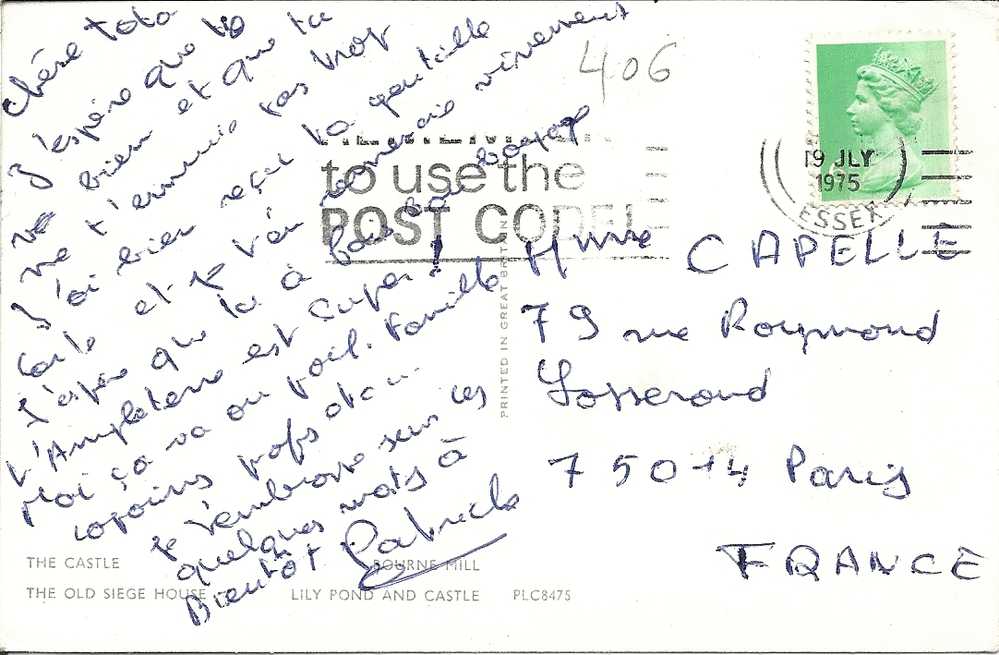 Chère toto
J'espère que tu
va bien et que tu
ne t'ennuie pas trop
J'ai bien reçu ta gentille
carte et t'en remercie vivement
J'espère que tu à fais bon voyage
L'Angleterre est super!
Moi ça va au poil. Famille
copains profs etc...
Je t'embrasse sur ces
quelques mots à
Bientôt Patrick
406
to use the
POST CODE!
19 JLY
1975
ESSEX
PRINTED IN GREAT BRITAIN
Mme CAPELLE
79 rue Raymond
Losserand
75014 Paris
FRANCE
THE CASTLE BOURNE MILL
THE OLD SIEGE HOUSE LILY POND AND CASTLE PLC8475